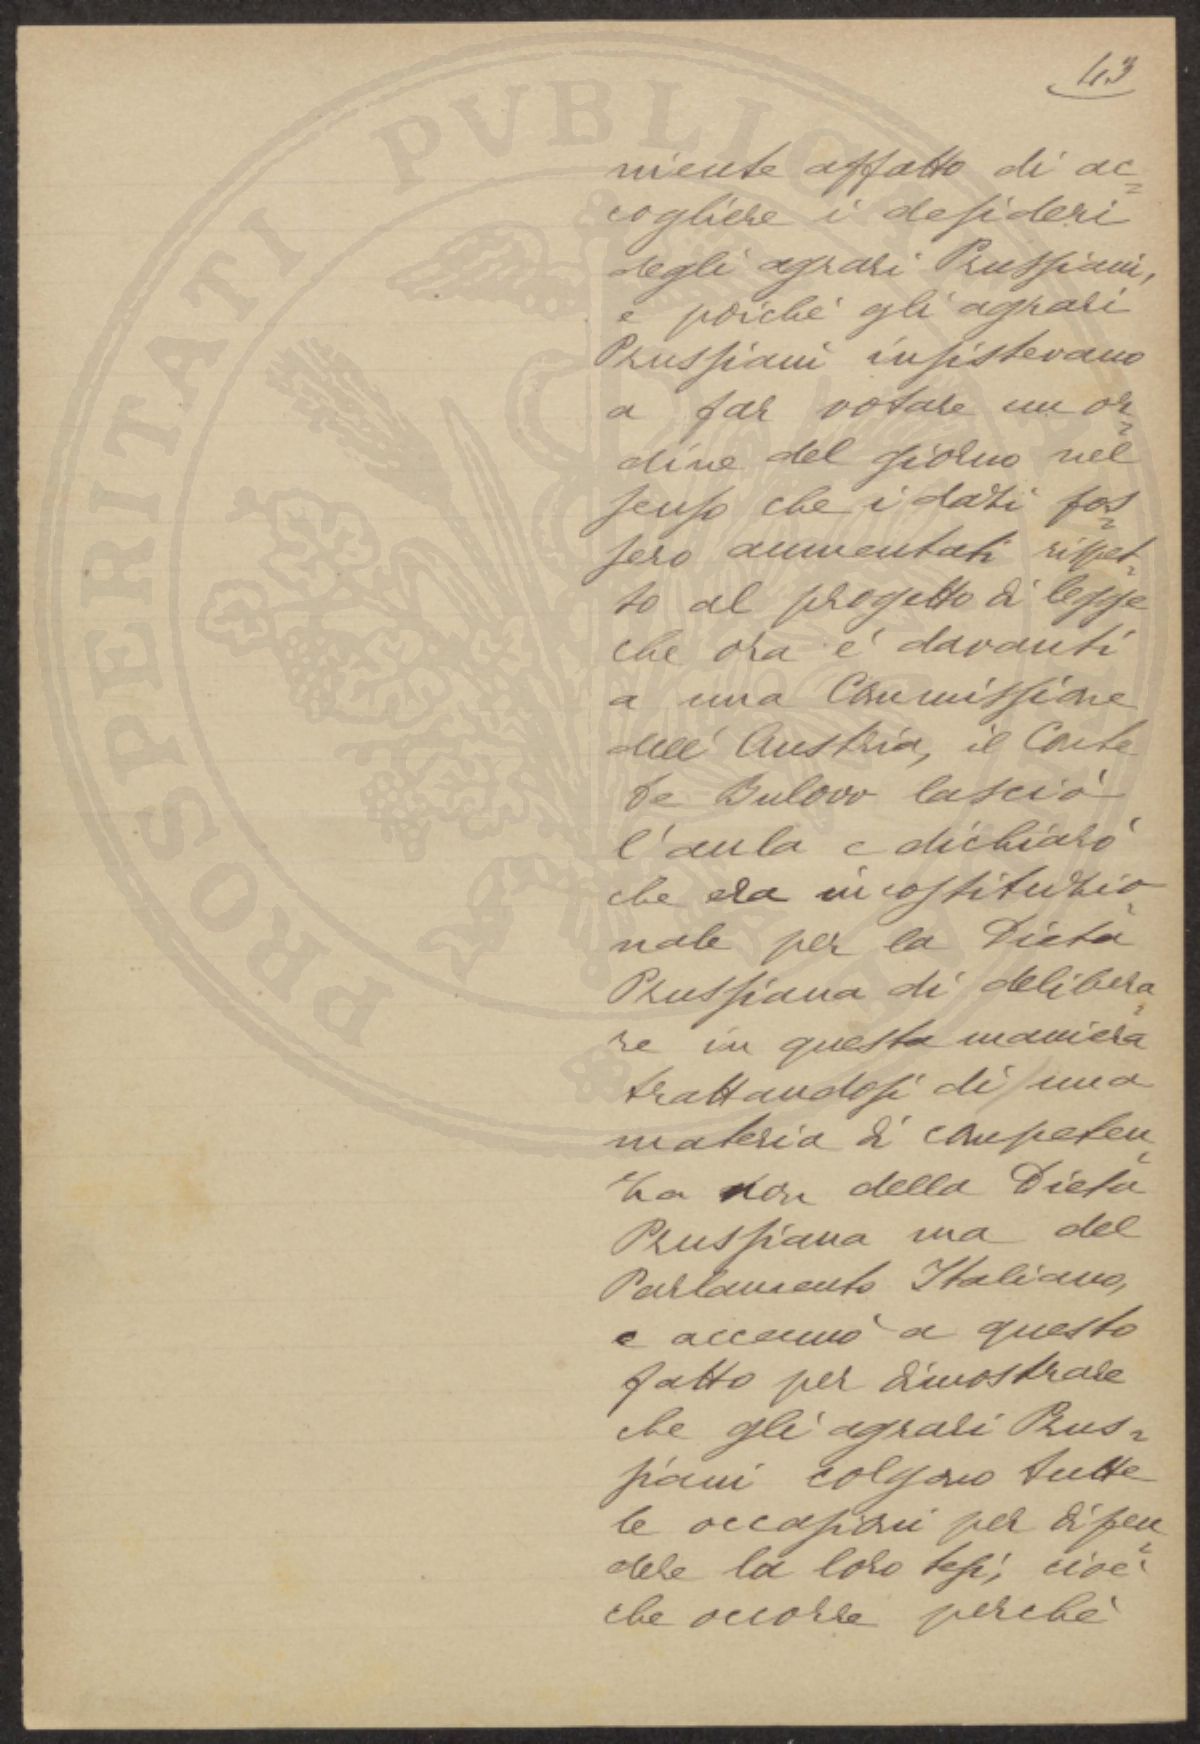 43
niente affatto di ac=
cogliere i desideri
degli agrari Prussiani,
e poichè gli agrari
Prussiani insistevano
a far votare un or=
dine del giorno nel
senso che i dazi fos=
sero aumentati rispet=
to al progetto di legge
che ora è davanti
a una Commissione
dell'Austria, il Conte
de Bulow lasciò
l'aula e dichiarò
che era incostituzio=
nale per la Dieta
Prussiana di delibera=
re in questa maniera
trattandosi di una
materia di competen=
za non della Dieta
Prussiana ma del
Parlamento Italiano,
e accennò a questo
fatto per dimostrare
che gli agrari Prus=
siani colgono tutte
le occasioni per difen=
dere la loro tesi, cioè
che occorre perchè
PROSPERITATI PVBLICAE